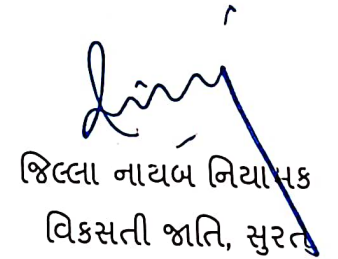 જિલ્લા નાયબ નિયામક
વિકસતી જાતિ, સુરત